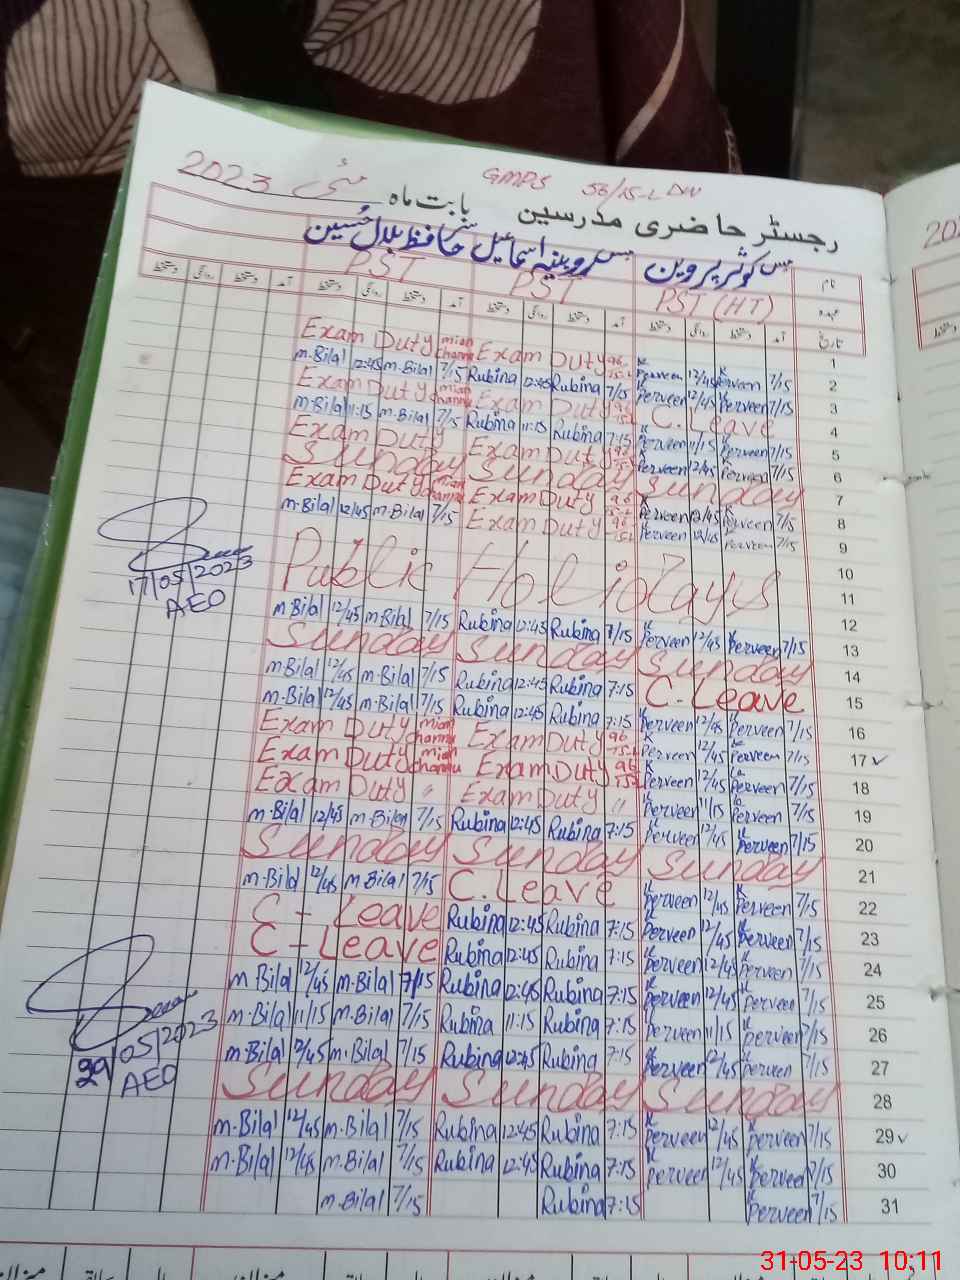 GMPS 56/15-L DW
رجسٹر حاضری مدرسین بابت ماہ مئی 2023
نام مس کوثر پروین مس روبینہ اسماعیل حافظ بلال حسین
عہدہ PST (HT) PST PST
تاریخ آمد دستخط روانگی دستخط آمد دستخط روانگی دستخط آمد دستخط روانگی دستخط آمد دستخط روانگی دستخط
1
Exam Duty mian channu Exam Duty 96 15-L K Perveen 12/45 K Perveen 7/15 2
M.Bilal 12:45 M.Bilal 7/15 Rubina 12:45 Rubina 7/15 K Perveen 12/45 K Perveen 7/15 3
Exam Duty mian channu Exam Duty 96 15-L C. Leave 4
M.Bilal 11:15 M.Bilal 7/15 Rubina 11:15 Rubina 7:15 K Perveen 11/15 K Perveen 7/15 5
Exam Duty Exam Duty 96 15-L K Perveen 12/45 K Perveen 7/15 6
Sunday Sunday Sunday 7
Exam Duty mian channu Exam Duty 96 15-L K Perveen 12/45 K Perveen 7/15 8
M.Bilal 12/45 M.Bilal 7/15 Exam Duty 96 15-L Perveen 12/45 Perveen 7/15 9
10
Public Holidays 11
12
M.Bilal 12/45 M.Bilal 7/15 Rubina 12:45 Rubina 7/15 K Perveen 12/45 K Perveen 7/15 13
Sunday Sunday Sunday 14
M.Bilal 12/45 M.Bilal 7/15 Rubina 12:45 Rubina 7:15 C.Leave 15
M.Bilal 12/45 M.Bilal 7/15 Rubina 12:45 Rubina 7:15 K Perveen 12/45 K Perveen 7/15 16
Exam Duty mian channu Exam Duty 96 15-L K Perveen 12/45 K Perveen 7/15 17 ✓
Exam Duty mian channu Exam Duty 96 15-L K Perveen 12/45 K Perveen 7/15 18
Exam Duty " Exam Duty " K Perveen 11/15 K Perveen 7/15 19
M.Bilal 12/45 M.Bilal 7/15 Rubina 12:45 Rubina 7:15 K Perveen 12/45 K Perveen 7/15 20
Sunday Sunday Sunday 21
M.Bilal 12/45 M.Bilal 7/15 C.Leave K Perveen 12/45 K Perveen 7/15 22
C-Leave Rubina 12:45 Rubina 7:15 K Perveen 12/45 K Perveen 7/15 23
C-Leave Rubina 12:45 Rubina 7:15 K Perveen 12/45 K Perveen 7/15 24
M.Bilal 12/45 M.Bilal 7/15 Rubina 12:45 Rubina 7:15 K Perveen 12/45 K Perveen 7/15 25
M.Bilal 11/15 M.Bilal 7/15 Rubina 11:15 Rubina 7:15 K Perveen 11/15 K Perveen 7/15 26
M.Bilal 12/45 M.Bilal 7/15 Rubina 12:45 Rubina 7:15 K Perveen 12/45 K Perveen 7/15 27
Sunday Sunday Sunday 28
M.Bilal 12/45 M.Bilal 7/15 Rubina 12:45 Rubina 7:15 K Perveen 12/45 K Perveen 7/15 29 ✓
M.Bilal 12/45 M.Bilal 7/15 Rubina 12:45 Rubina 7:15 K Perveen 12/45 K Perveen 7/15 30
M.Bilal 7/15 Rubina 7:15 K Perveen 7/15 31
17/05/2023
AEO
29/05/2023
AEO
31-05-23 10:11